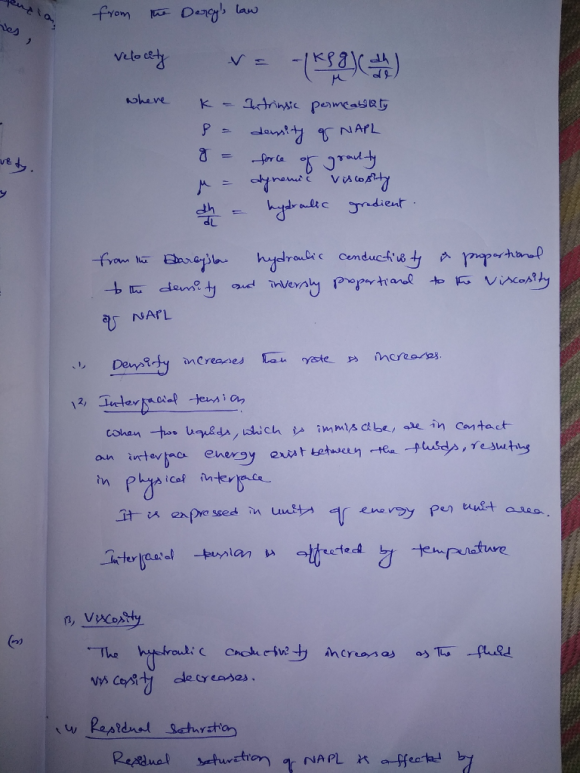 from the Darcy's law
velocity V = -(Kρg/μ)(dh/dl)
where K = Intrinsic permeability
ρ = density of NAPL
g = force of gravity
μ = dynamic viscosity
dh/dL = hydralic gradient.
from the Darcy's law hydraulic conductivity is proportional
to the density and inversly proportional to the viscosity
of NAPL
.1, Density increases then rate is increases.
.2, Interfacial tension
when two liquids, which is immiscible, are in contact
an interface energy exist between the fluids, resulting
in physical interface
It is expressed in units of energy per unit area.
Interfacial tension is affected by temperature
3, Viscosity
The hydraulic conductivity increases as the fluid
viscosity decreases.
.4, Residual saturation
Residual saturation of NAPL is affected by